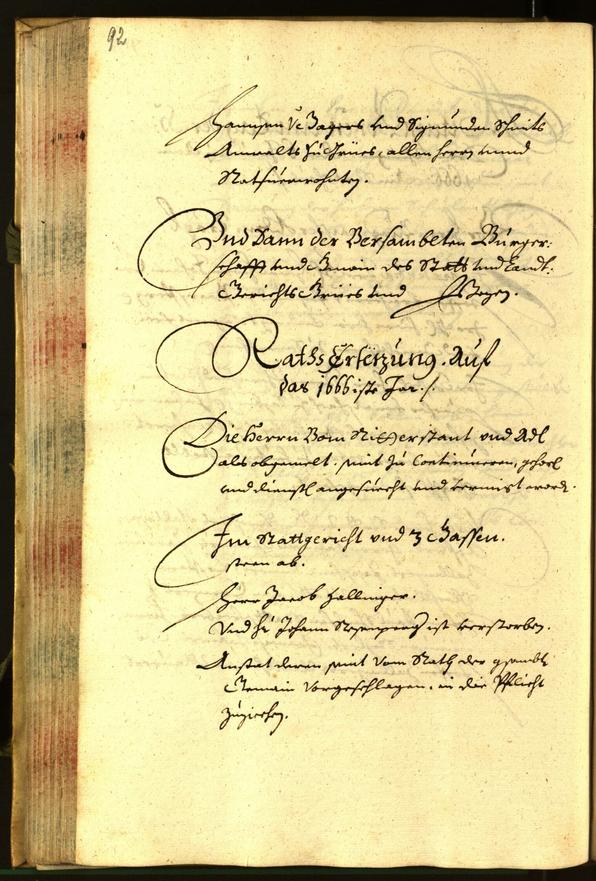 92
Hannsen
und Sigmunden
Anwalts zu Gries, allen herrn unnd
Rathsverwohnten.
Und Dann der Versambleten Bürger:
schafft und Gmain des Statt und Landt:
Gerichts Gries und Bozen.
Raths Ersëzung. Auf
das 1666iste Jar./.
Die Herrn Vom Ritterstant und Adl
als obgemelt. sint zu Continuieren, gehorsl
und dienstl angesuecht und vermigt word:
Im Stattgericht und 3 Gassen.
steen ab.
Herr Jacob Hallinger.
Und Hr Johann ist verstorben.
Anstat deren sint vom Rath der gsambl
Gemain Vorgeschlagen. in die Pflicht
zunemen.